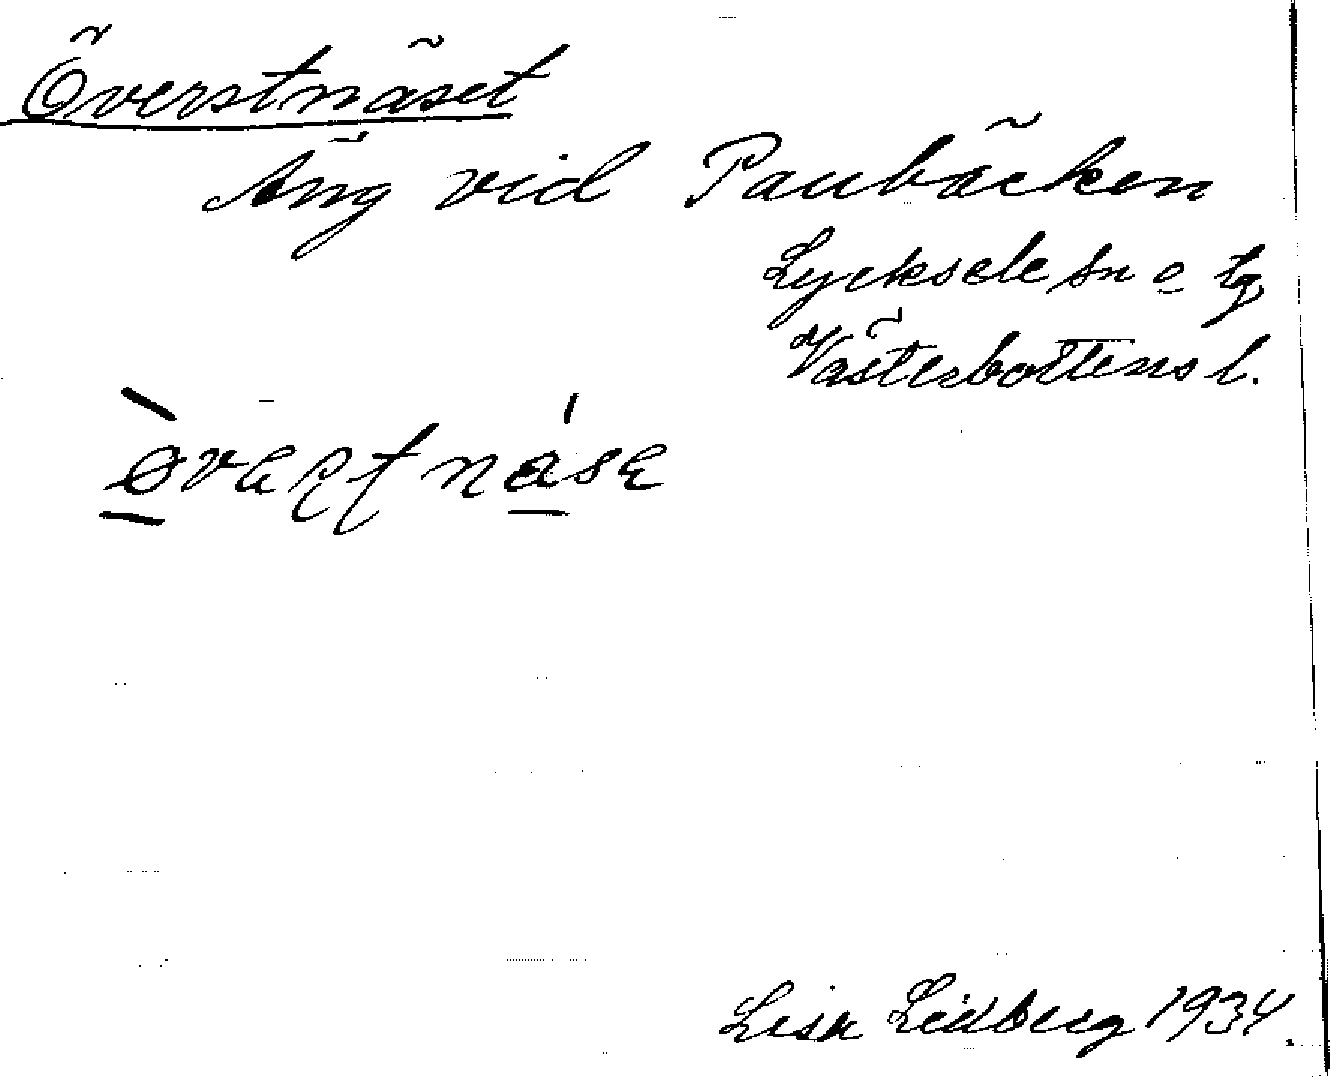 Överstnäset
Äng vid Paubäcken
Lycksele sn o tg
Västerbottens l.
Lisa Lidberg 1934.